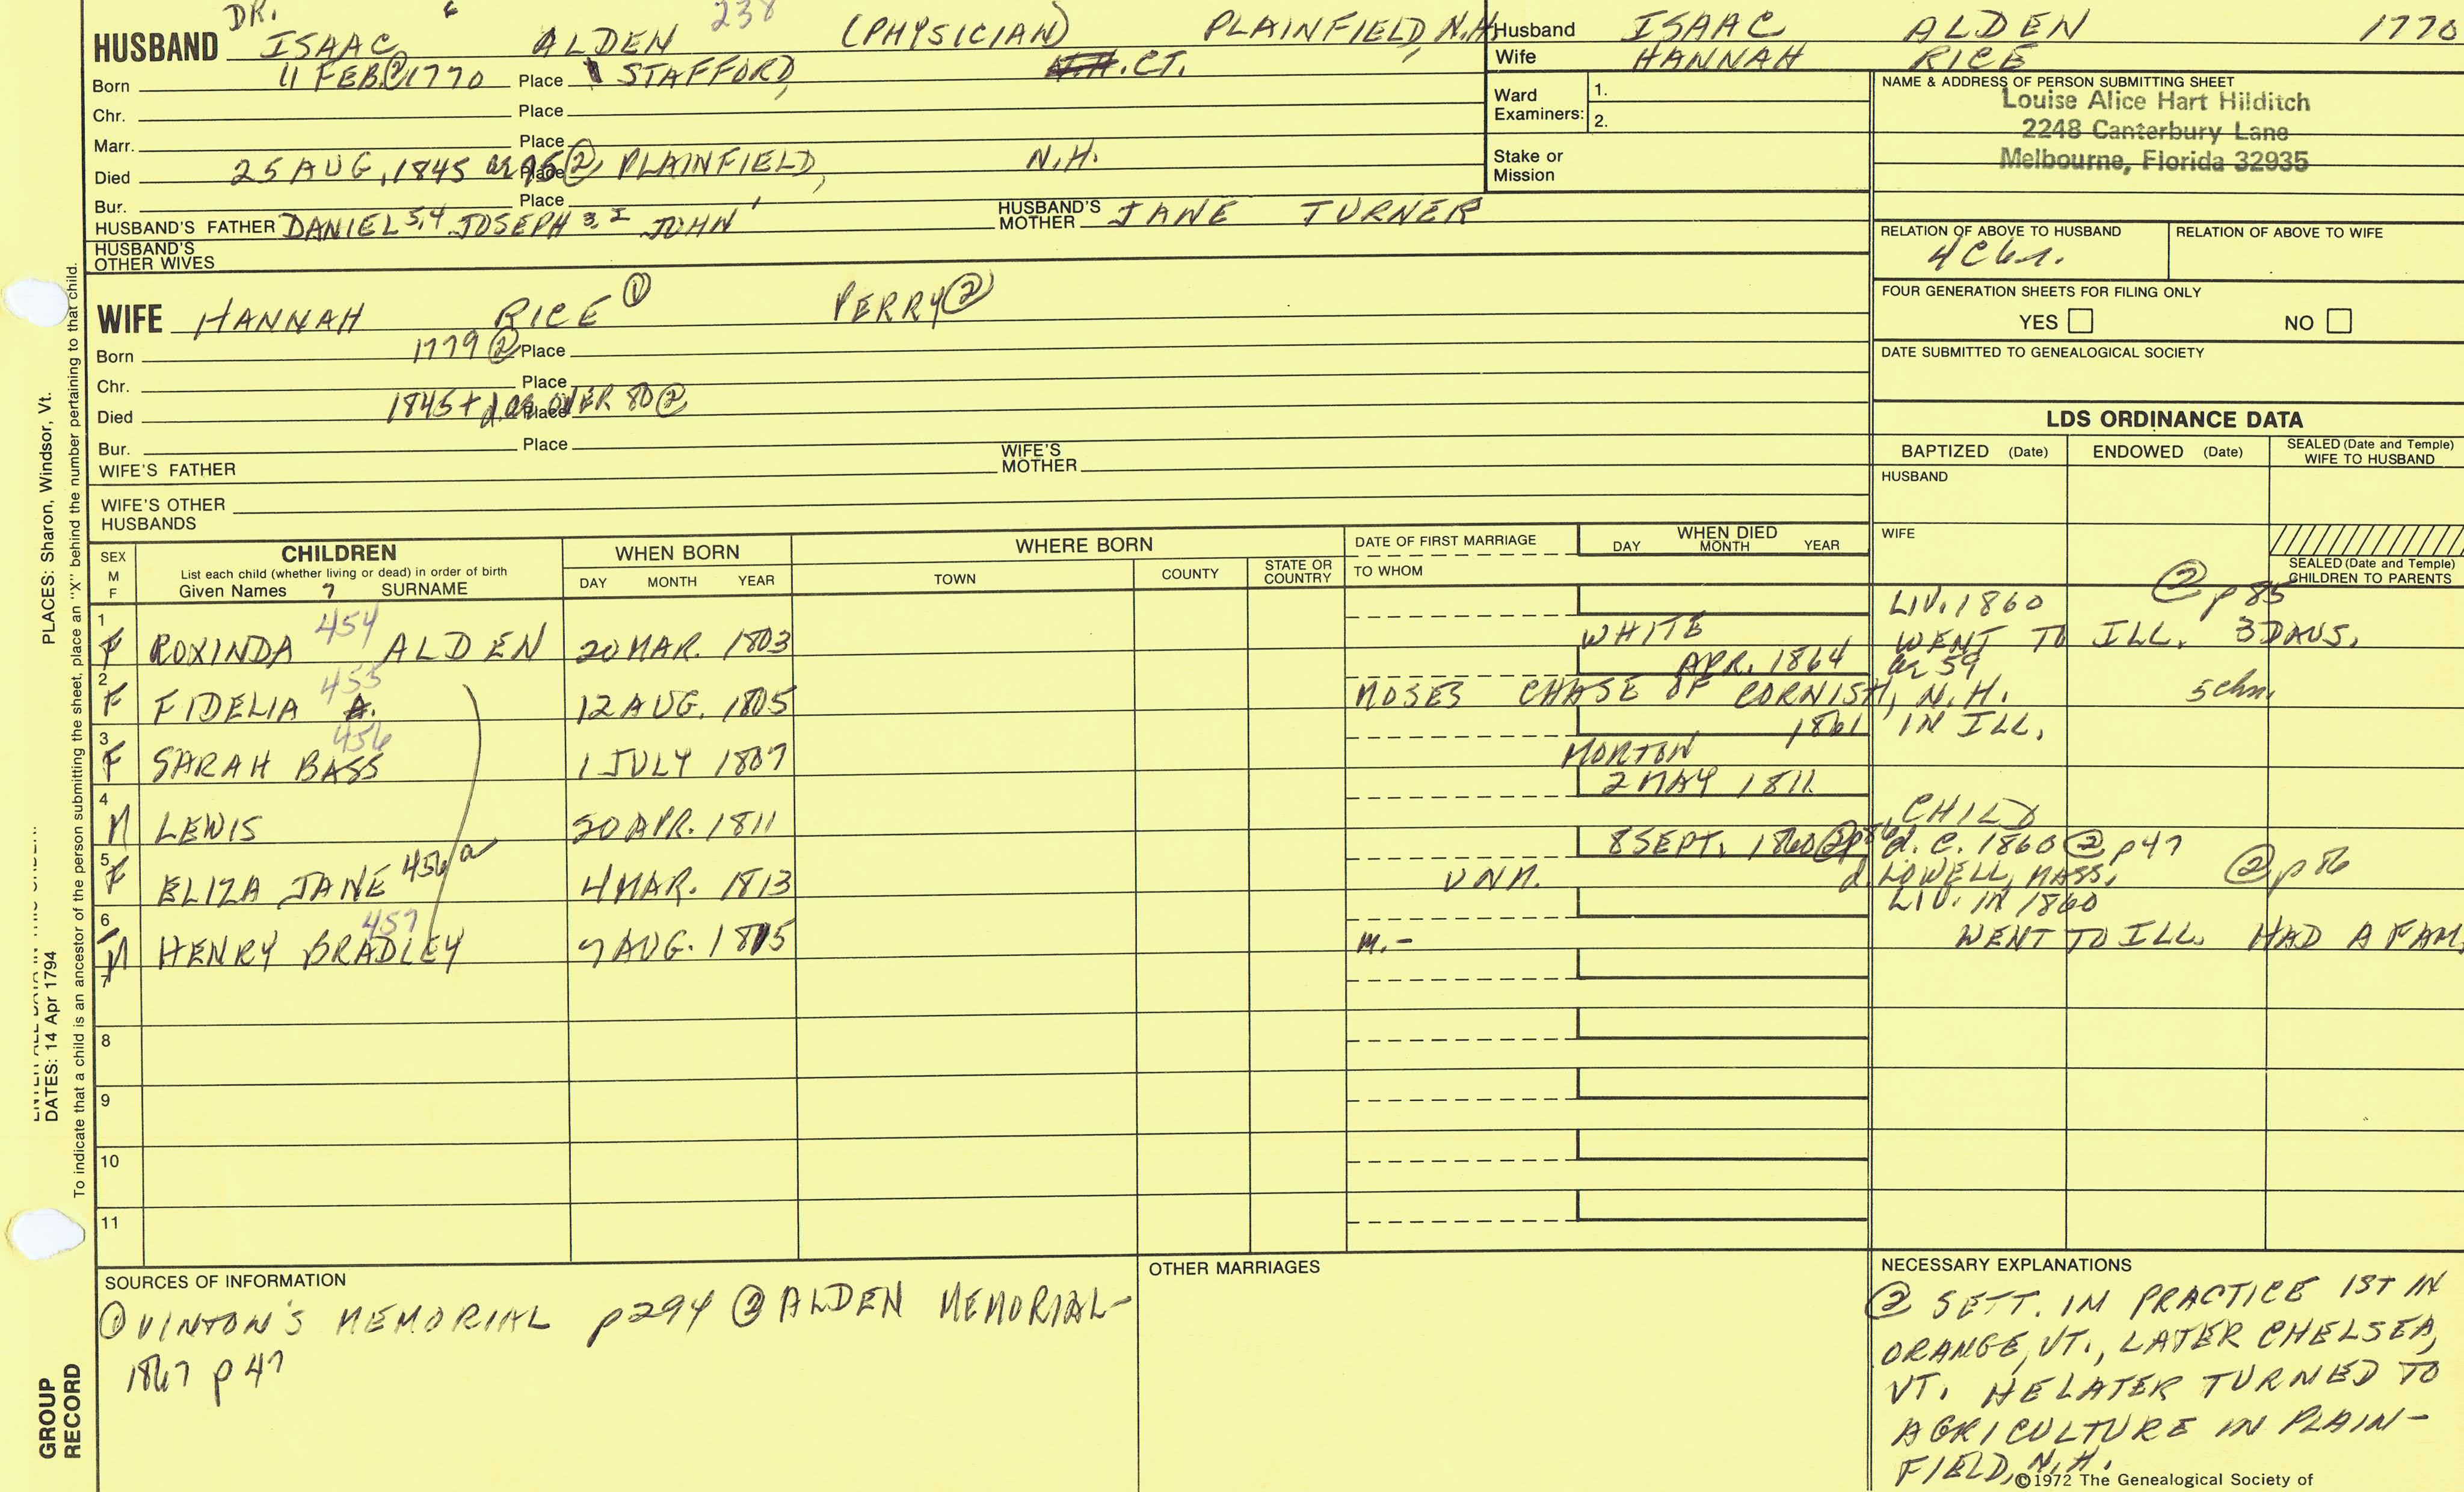 DR. 6 238
HUSBAND ISAAC ALDEN (PHYSICIAN) PLAINFIELD, N.H.
Born 11 FEB.② 1770 Place STAFFORD, N.H. CT.
Chr. Place
Marr. Place
Died 25 AUG, 1845 ae 75② Place PLAINFIELD, N.H.
Bur. Place
HUSBAND'S FATHER DANIEL 5,4 JOSEPH 3,2 JOHN 1 HUSBAND'S MOTHER JANE TURNER
HUSBAND'S OTHER WIVES
WIFE HANNAH RICE① PERRY②
Born 1779② Place
Chr. Place
Died 1845+ d. ae OVER 80② Place
Bur. Place
WIFE'S FATHER WIFE'S MOTHER
WIFE'S OTHER HUSBANDS
Husband ISAAC ALDEN 1770
Wife HANNAH RICE
Ward Examiners: 1.
2.
Stake or Mission
NAME & ADDRESS OF PERSON SUBMITTING SHEET
Louise Alice Hart Hilditch
2248 Canterbury Lane
Melbourne, Florida 32935
RELATION OF ABOVE TO HUSBAND RELATION OF ABOVE TO WIFE
4C6r.
FOUR GENERATION SHEETS FOR FILING ONLY
YES NO
DATE SUBMITTED TO GENEALOGICAL SOCIETY
LDS ORDINANCE DATA
BAPTIZED (Date) ENDOWED (Date) SEALED (Date and Temple) WIFE TO HUSBAND
HUSBAND
WIFE
SEALED (Date and Temple) CHILDREN TO PARENTS
SEX M F
CHILDREN
List each child (whether living or dead) in order of birth
Given Names 7 SURNAME
WHEN BORN
DAY MONTH YEAR
WHERE BORN
TOWN COUNTY STATE OR COUNTRY
DATE OF FIRST MARRIAGE
TO WHOM
WHEN DIED
DAY MONTH YEAR
1 LIV. 1860 ② p 85
F ROXINDA 454 ALDEN 20 MAR. 1803 WHITE WENT TO ILL. 3 DAUS.
2 455 APR. 1864 ae 59
F FIDELIA A. 12 AUG. 1805 MOSES CHASE OF CORNISH, N.H. 5 chn.
3 456 1861 IN ILL.
F SARAH BASS 1 JULY 1807 MORTON
4 2 MAY 1811
M LEWIS 20 APR. 1811 CHILD
5 8 SEPT. 1860 ② p86 d. c. 1860 ② p47
F ELIZA JANE 456/a 4 MAR. 1813 UNM. d. LOWELL, MASS. ② p 86
6 457 LIV. IN 1860
M HENRY BRADLEY 7 AUG. 1815 m.- WENT TO ILL. HAD A FAM.
7
8
9
10
11
SOURCES OF INFORMATION
① VINTON'S MEMORIAL p294 ② ALDEN MEMORIAL-
1867 p 47
OTHER MARRIAGES
NECESSARY EXPLANATIONS
② SETT. IM PRACTICE 1ST IN
ORANGE, VT., LATER CHELSEA,
VT. HE LATER TURNED TO
AGRICULTURE IN PLAIN-
FIELD, N.H.
©1972 The Genealogical Society of
PLACES: Sharon, Windsor, Vt.
To indicate that a child is an ancestor of the person submitting the sheet, place an "X" behind the number pertaining to that child.
DATES: 14 Apr 1794
GROUP
RECORD